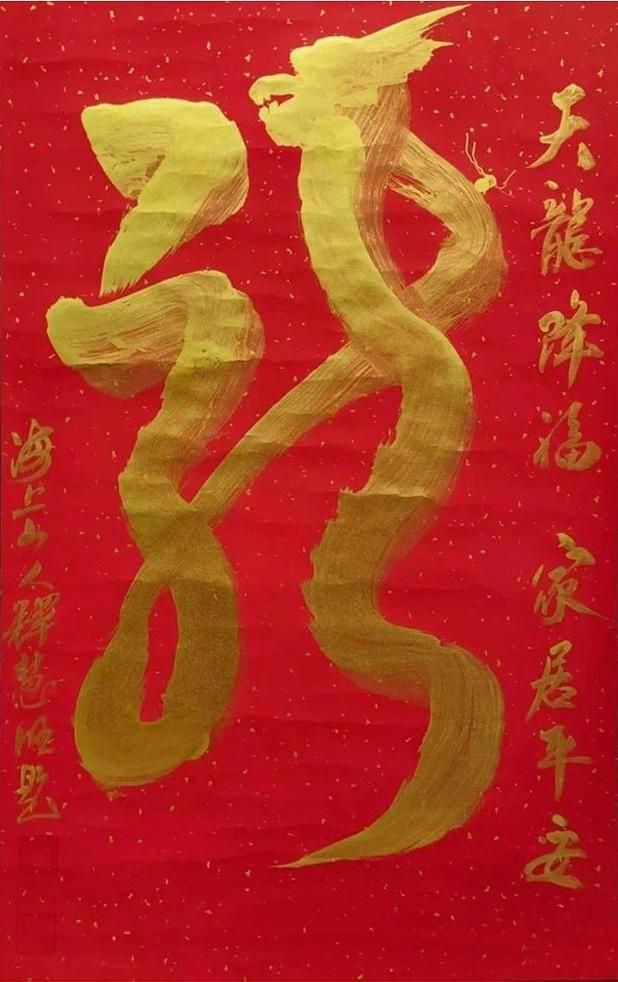 天龍降福 家居平安
龍
海上山人釋慧海題